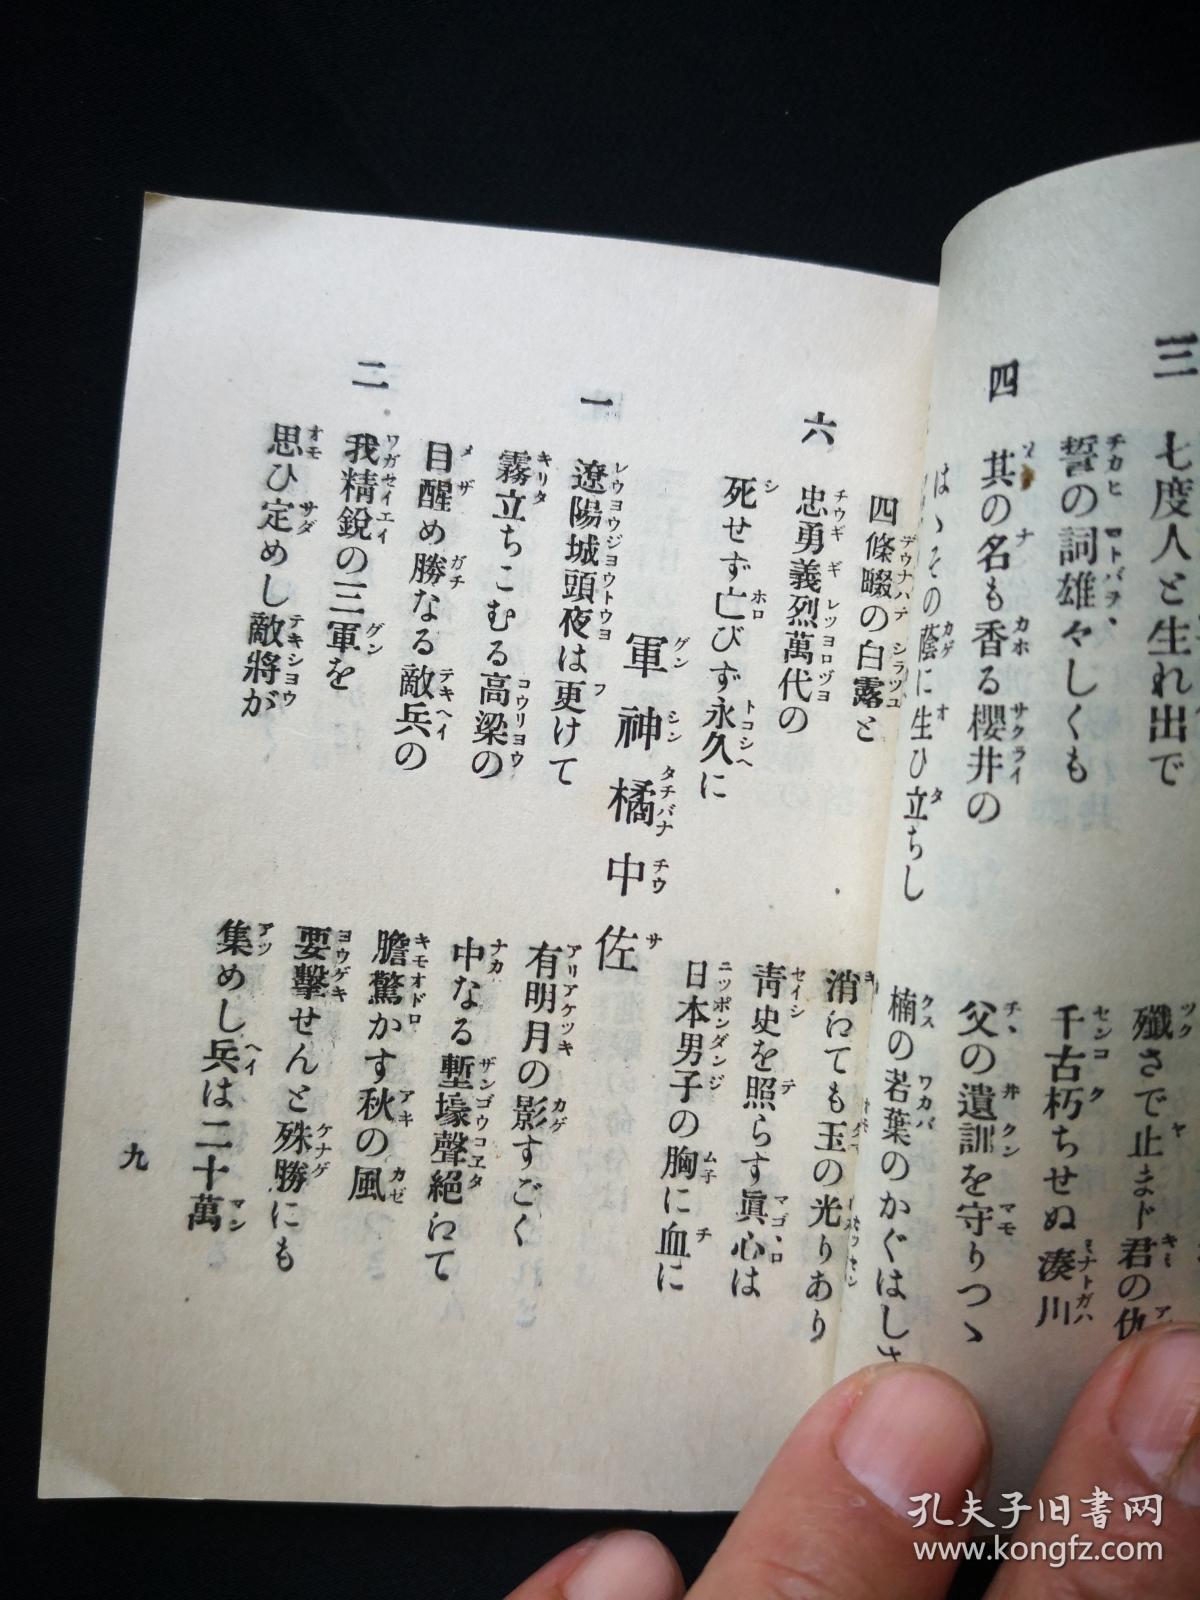 三 七度人と生れ出で 殲さで止まド君の仇
誓の詞雄々しくも 千古朽ちせぬ湊川
四 其の名も香る櫻井の 父の遺訓を守りつゝ
はゝその蔭に生ひ立ちし 楠の若葉のかぐはしさ
四條畷の白露と 消ゐても玉の光りあり
六 忠勇義烈萬代の 靑史を照らす眞心は
死せず亡びず永久に 日本男子の胸に血に
軍神橘中佐
一 遼陽城頭夜は更けて 有明月の影すごく
霧立ちこむる高梁の 中なる塹壕聲絕ゐて
目醒め勝なる敵兵の 膽驚かす秋の風
二 我精銳の三軍を 要擊せんと殊勝にも
思ひ定めし敵將が 集めし兵は二十萬
九
孔夫子旧书网
www.kongfz.com